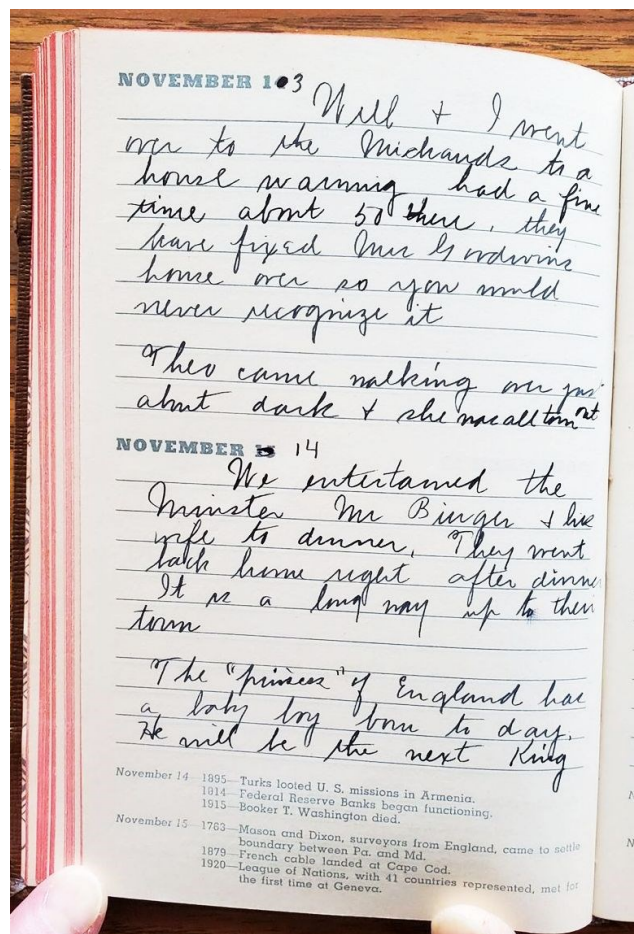 NOVEMBER 13
Will & I went
over to the Michauds to a
house warming had a fine
time about 50 there, they
have fixed Mrs Goodwins
house over so you would
never recognize it
Theo came walking over just
about dark & she was all torn out
NOVEMBER 14
We entertained the
Minister Mr Binger & his
wife to dinner. They went
back home right after dinner
It is a long way up to their
town
The "princess" of England has
a baby boy born to day.
He will be the next King
November 14—1895—Turks looted U. S. missions in Armenia.
1914—Federal Reserve Banks began functioning.
1915—Booker T. Washington died.
November 15—1763—Mason and Dixon, surveyors from England, came to settle
boundary between Pa. and Md.
1879—French cable landed at Cape Cod.
1920—League of Nations, with 41 countries represented, met for
the first time at Geneva.